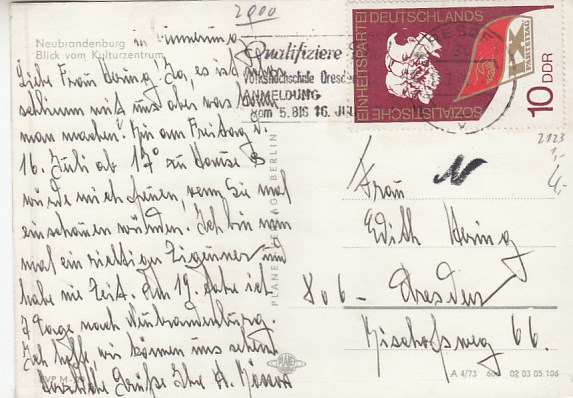 2900
Neubrandenburg
Blick vom Kulturzentrum
in
Liebe Frau Hering! Ja, es ist
schlimm mit uns aber was kann
man machen? Bin am Freitag d.
16. Juli ab 17° zu Hause &
würde mich freuen, wenn Sie mal
einschauen würden. Ich bin nun
mal ein richtiger Zigeuner und
habe nie Zeit. Am 19. fahre ich
7 Tage nach Neubrandenburg.
Ich hoffe, wir können uns sehen
Herzliche Grüße Ihre H.
Qualifiziere
Volkshochschule Dresden
ANMELDUNG
vom 5. BIS 16. JULI
DRESDEN
SOZIALISTISCHE
EINHEITSPARTEI DEUTSCHLANDS
IX
PARTEITAG
10 DDR
2123
1,-
4,-
Frau
Edith Hering
806 - Dresden
Bischofsweg 66.
PLANET VERLAG BERLIN
PLANET
A 4/73 02 03 05 106